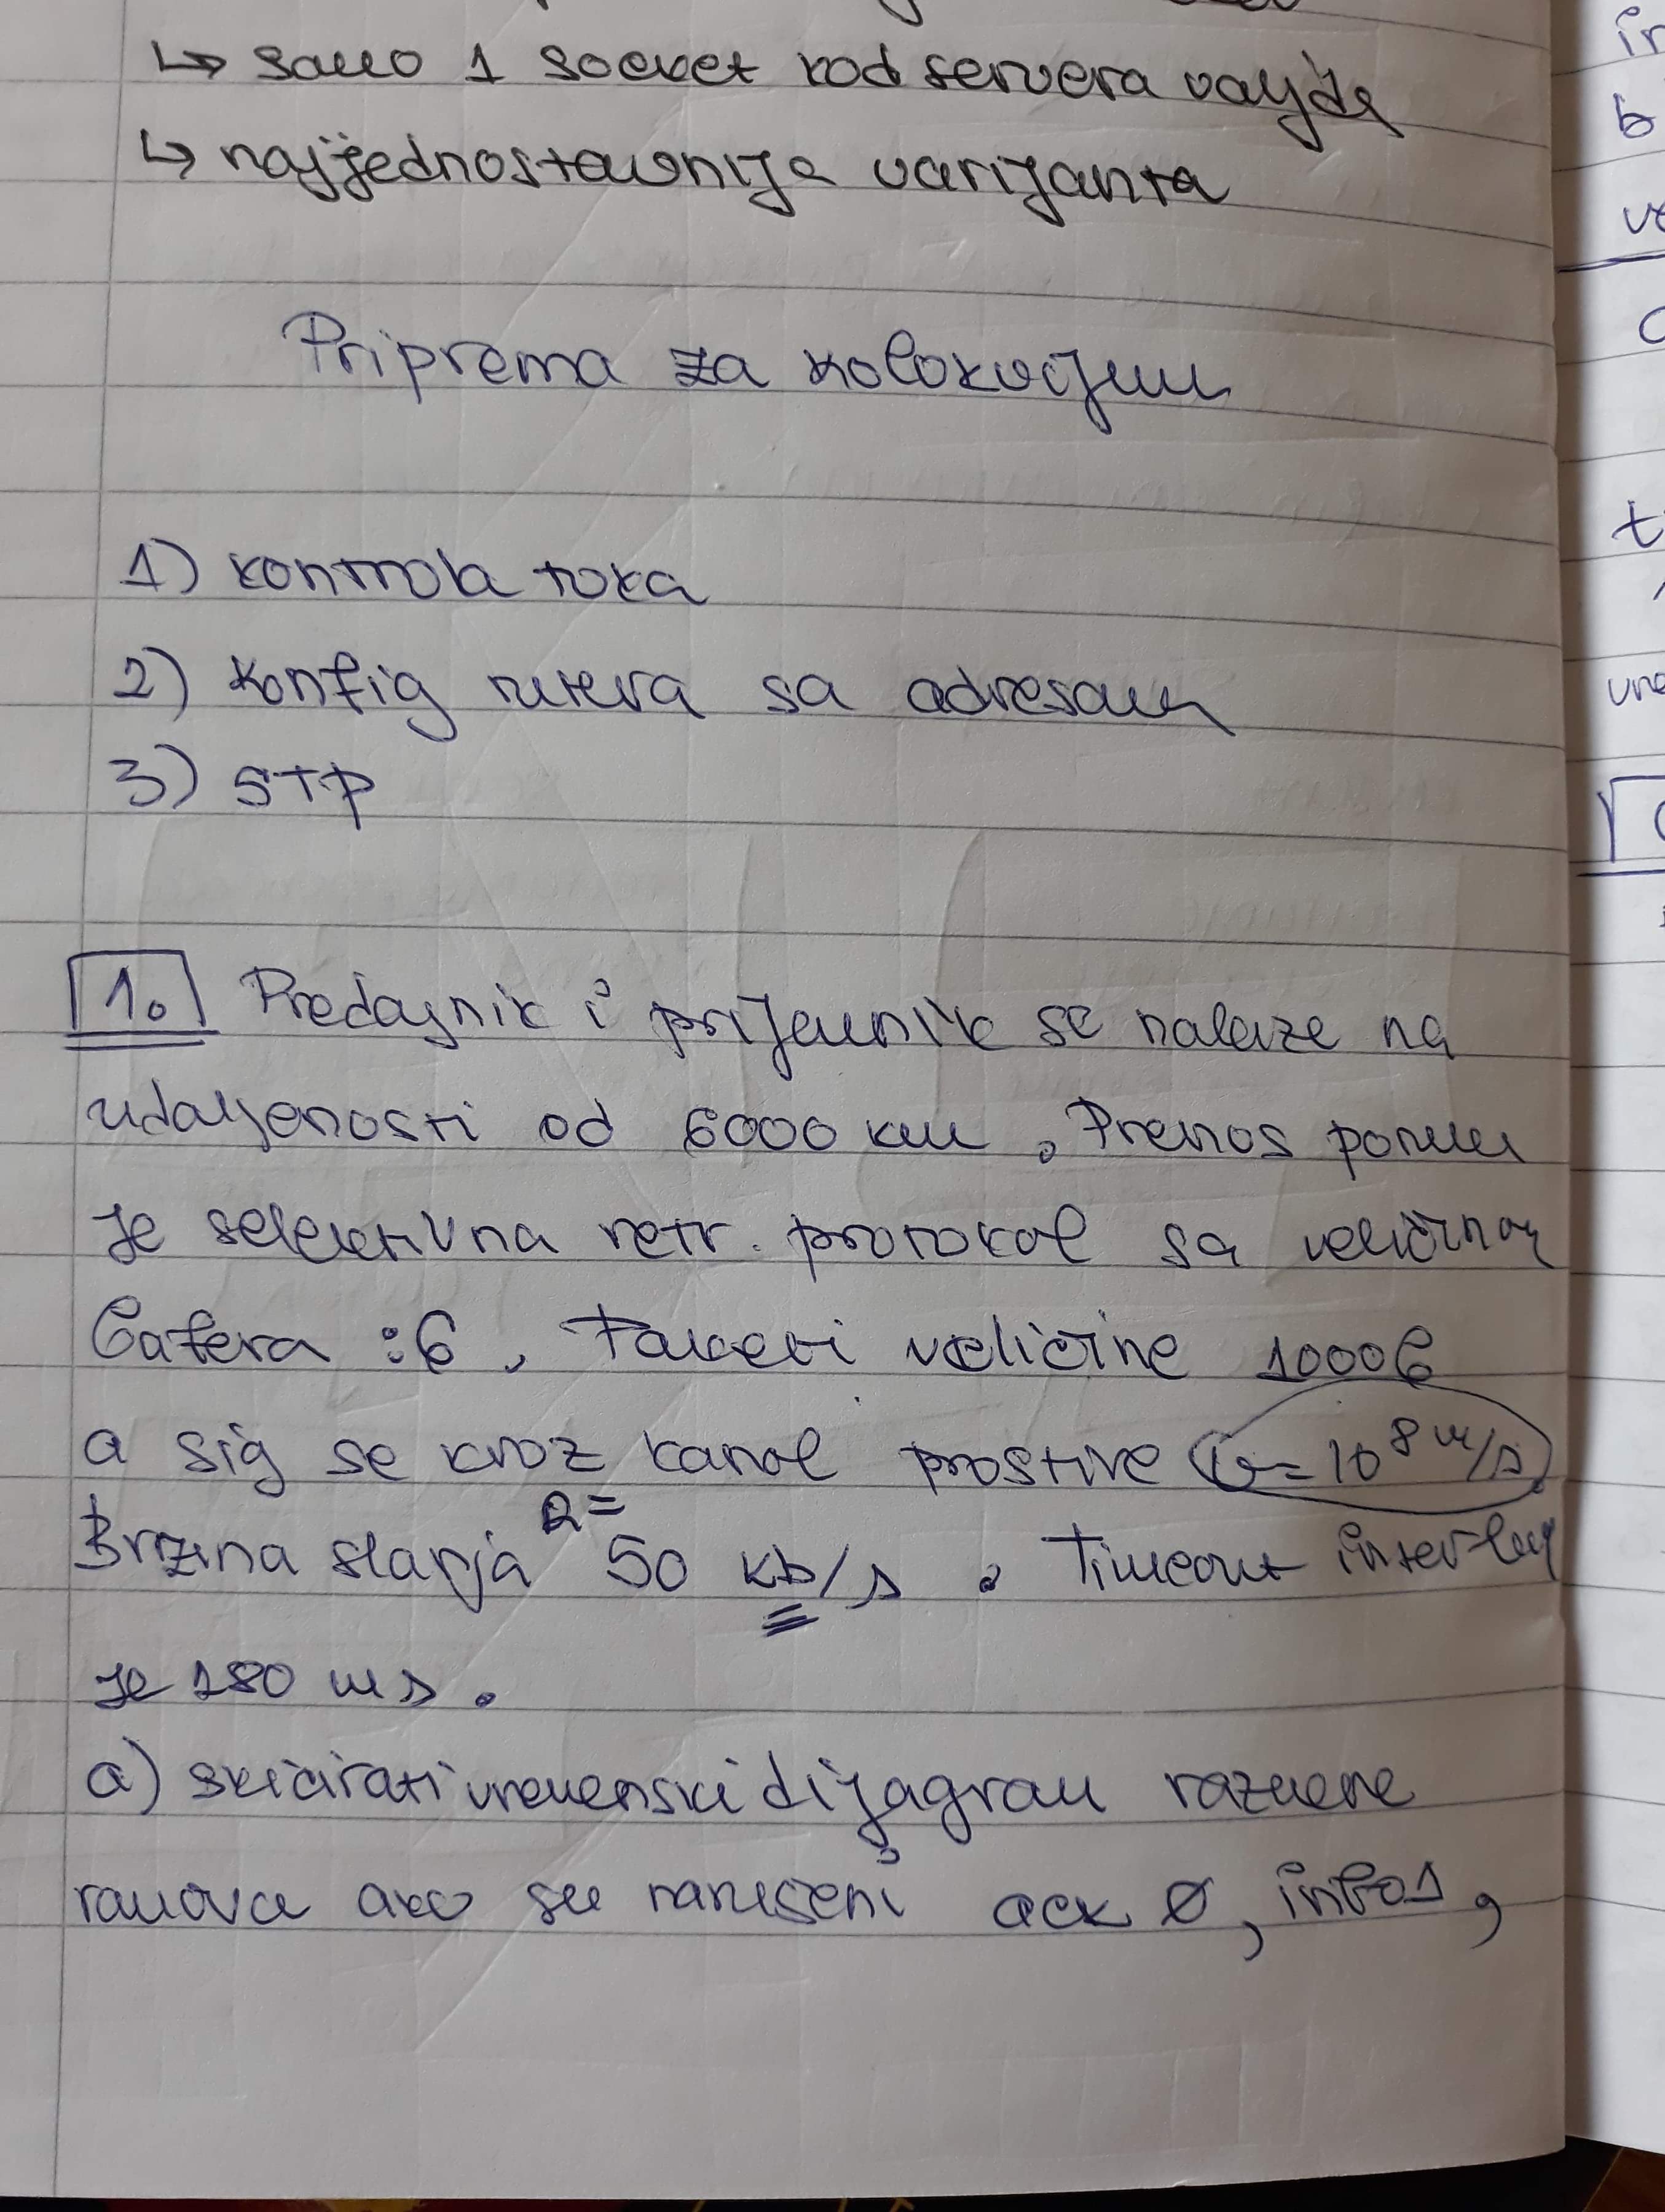 ↳ samo 1 socket kod servera valjda
↳ najjednostavnija varijanta
Priprema za kolokvijum
1) kontrola toka
2) Konfig rutera sa adresama
3) STP
1. Predajnik i prijemnik se nalaze na
udaljenosti od 6000 km. Prenos poruka
je selektivna retr. protokol sa veličinom
bafera : 6, Paketi veličine 1000b
a sig se kroz kanal prostire v = 10⁸ m/s.
Brzina slanja R= 50 kb/s. Timeout interval
je 180 ms.
a) skicirati vremenski dijagram razmene
ramova ako su narušeni ack Ø, info1,
in
b
t